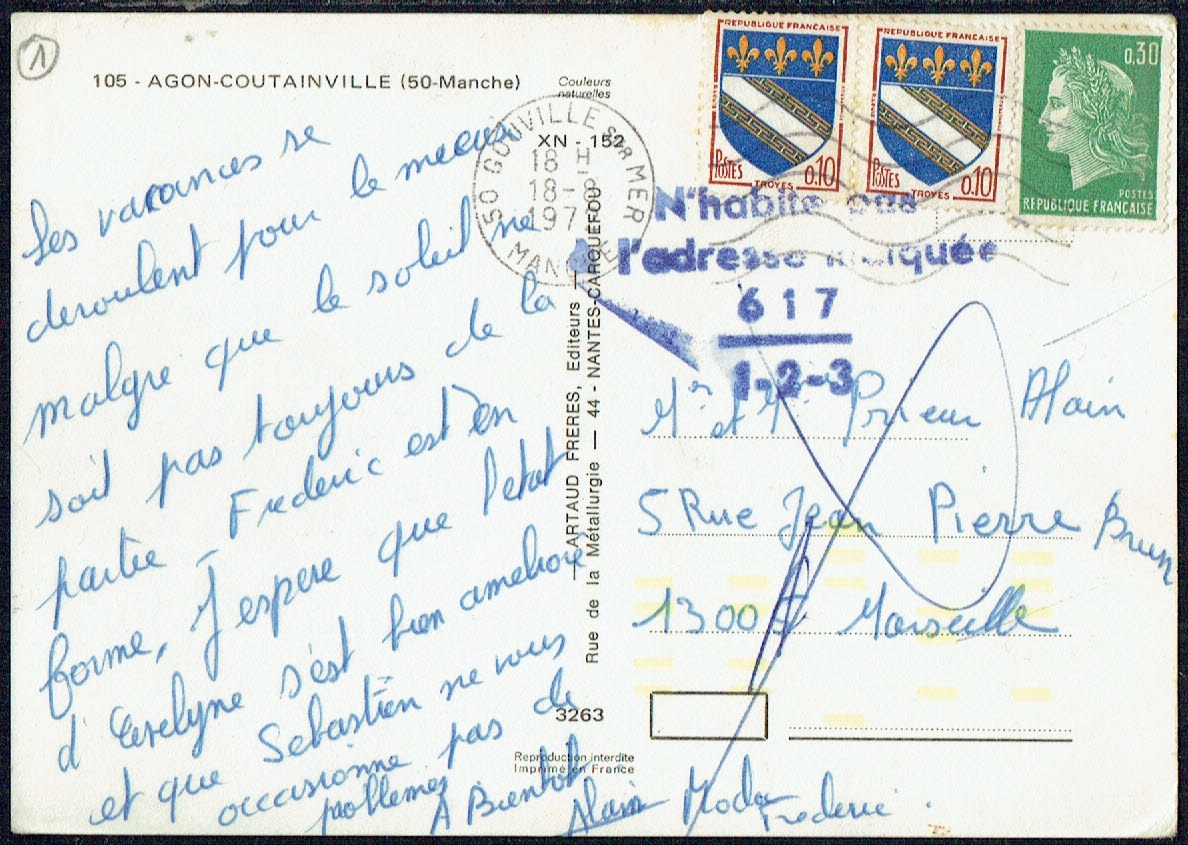 1
105 - AGON-COUTAINVILLE (50-Manche)
Couleurs
naturelles
XN - 152
Les vacances se
deroulent pour le mieux
malgre que le soleil ne
soit pas toujours de la
partie - Frederic est en
forme, J'espere que l'etat
d'Evelyne s'est bien amelioré
et que Sebastien ne vous
occasionne pas de
problemes
A Bientot
Alain
Frederic.
ARTAUD FRERES, Editeurs —
Rue de la Métallurgie — 44 - NANTES-CARQUEFOU
3263
Reproduction interdite
Imprimé en France
50 GOUVILLE SUR MER
18 H
18 - 8
197
MANCHE
REPUBLIQUE FRANÇAISE
POSTES
TROYES
0.10
REPUBLIQUE FRANÇAISE
POSTES
TROYES
0.10
0,30
POSTES
REPUBLIQUE FRANÇAISE
N'habite pas
à l'adresse indiquée
617
1-2-3
Mr et Me Prieur Alain
5 Rue Jean Pierre Brun
13005 Marseille